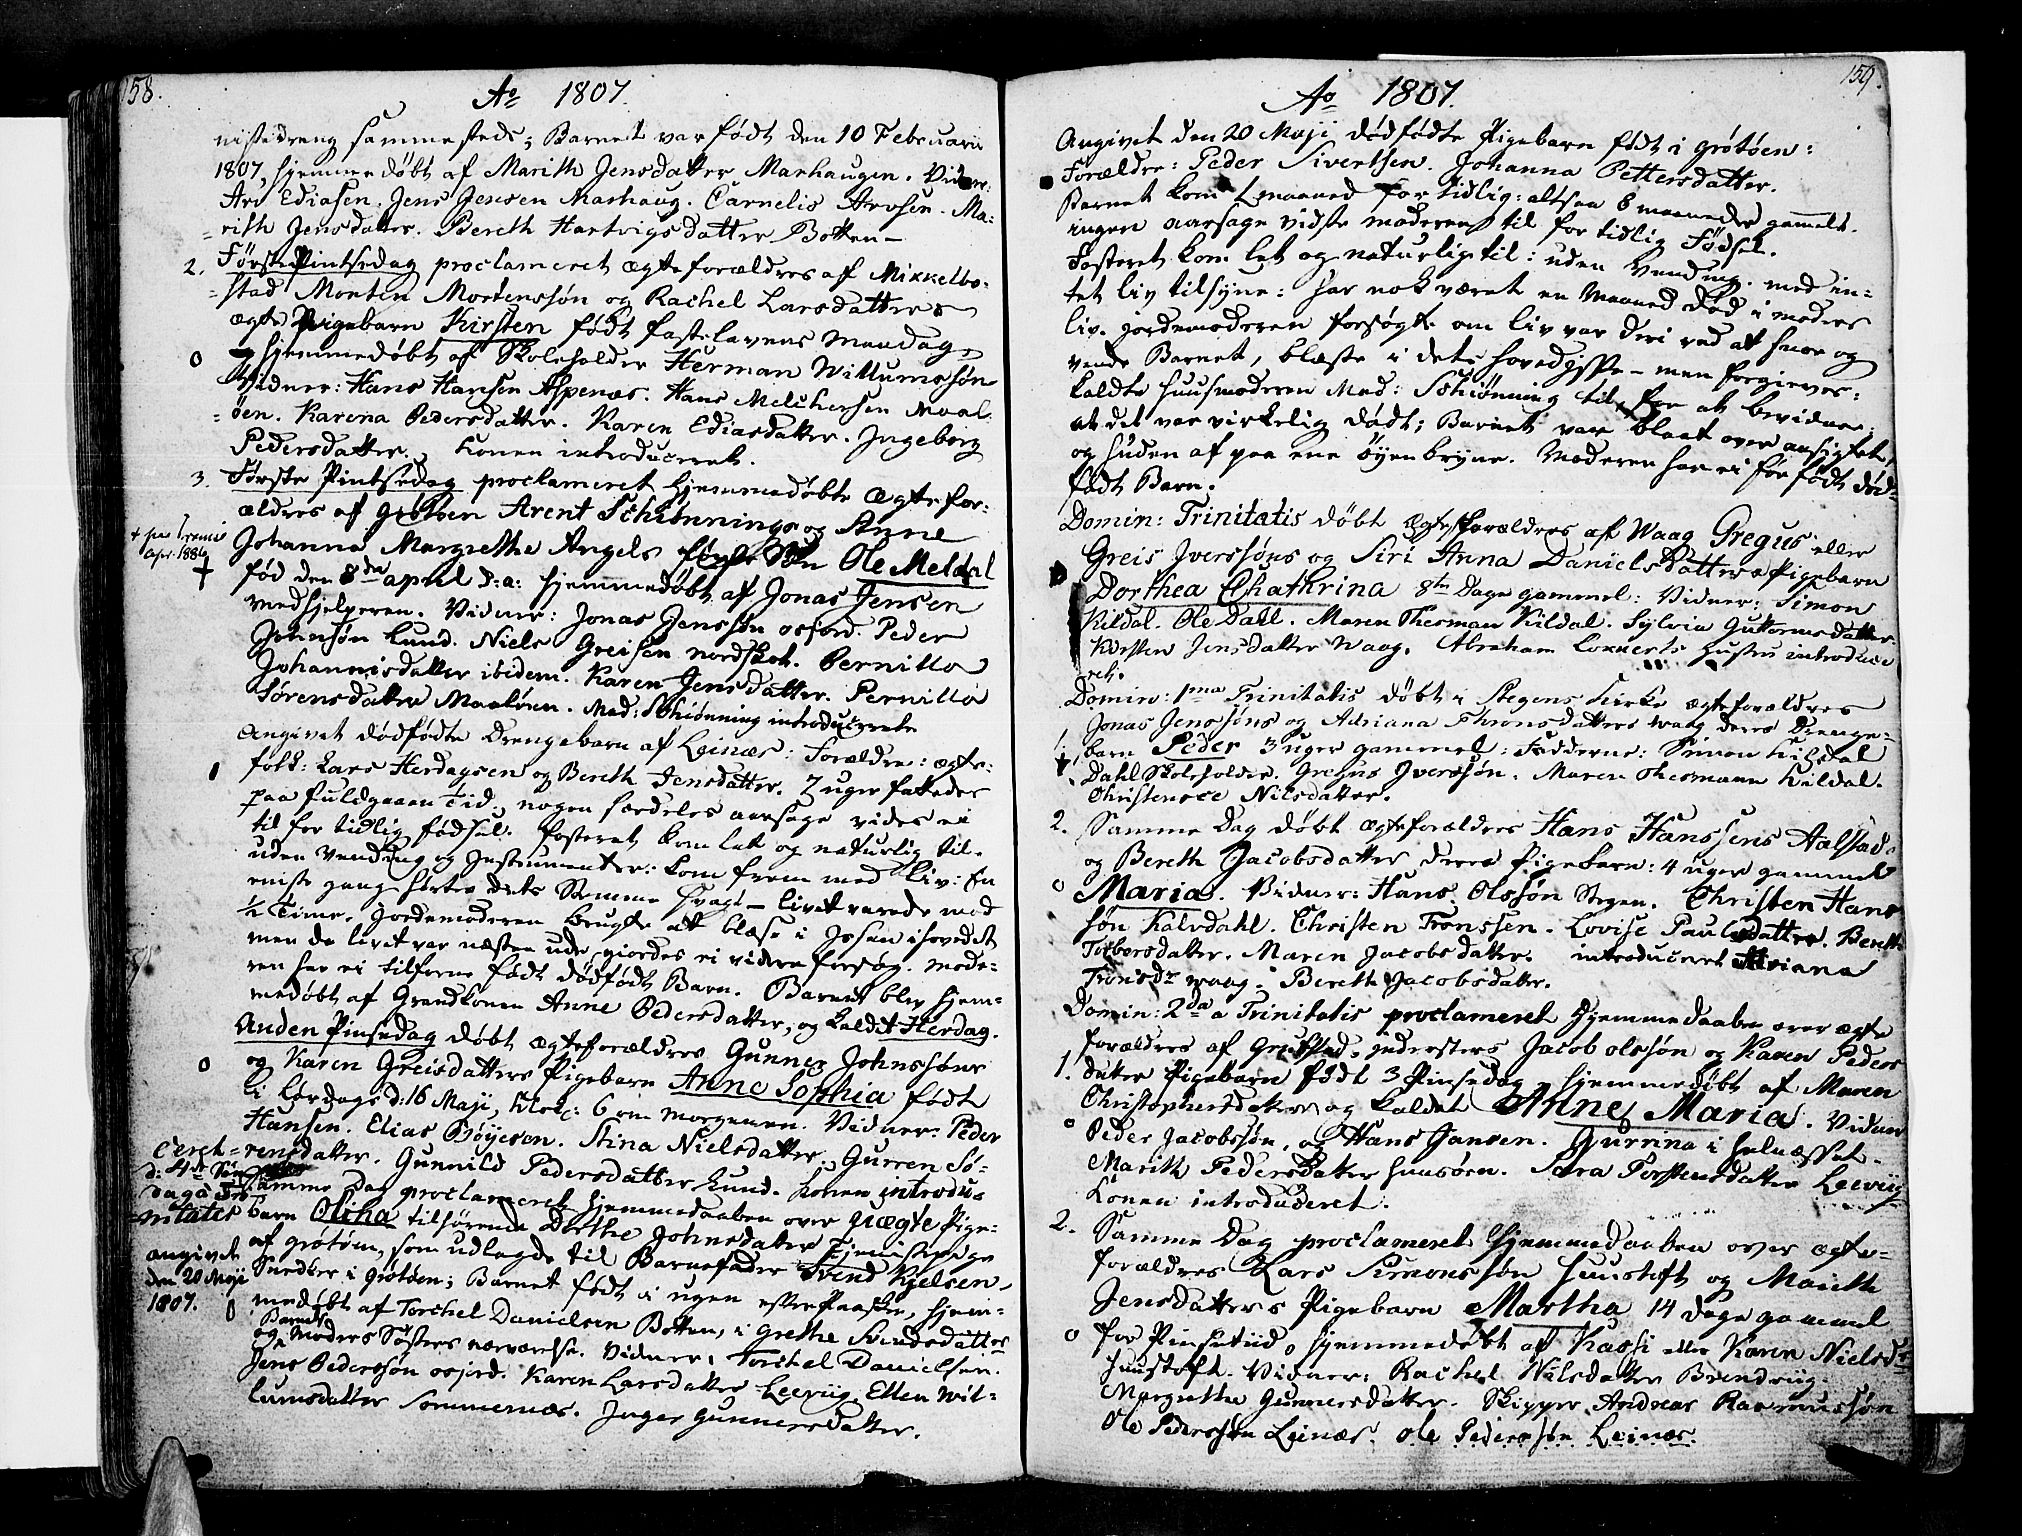 158.
Ao 1807.
tienistedreng sammesteds; Barnet var født den 10 Februarii
1807, hjemmedøbt af Marith Jensdatter Marhaugen. Vidner:
Arv Ediasen. Jens Jensen Marhaug. Carnelis Arvsen. Ma-
=rith Jensdatter. Bereth Hartvigsdatter Botten-
2. Første Pintsedag proclameret ægteforældres af Mikkelbo-
=stad Morten Mortenssøn og Rachel Larsdatters
ægte Pigebarn Kirsten født fastelavens Mandag,
o hjemmedøbt af Skoleholder Herman Willumssøn
Vidner: Hans Hansen Aspenæs. Hans Melchersen Maal-
=øen. Karena Pedersdatter. Karen Ediasdatter. Ingeborg
Pedersdatter. Konen introduceret.
3. Første Pintsedag proclameret hjemmedøbte Ægtefor-
ældres af Grøtøen Arent Schiønnings og Anne
Johanna Margrethe Angels Søn Ole Meldal
fød den 8de april d:a: hjemmedøbt af Jonas Jensen
medhjelperen. Vidner: Jonas Jenssøn osjord. Peder
Johnsøn Lund. Niels Greisen nordskot. Pernilla
Johannisdatter ibidem. Karen Jensdatter. Pernilla
Sørensdatter Maaløen. Mad: Schiønning introduceret
Angivet dødfødte Drengebarn af Leinæs: Forældre: ægte-
folk: Lars Herdagsen og Bereth Jensdatter. 7 uger fattedes
paa fuldgaaen Tid, nogen særdeles aarsage vides ei
til for tidlig fødsel. Fosteret kom let og naturlig til.
uden Vending og Instrumenter: kom frem med Liv: En
eniste gang hørtes dets Stemme svagt - livet varede med
1/2 Time. Jordemoderen brugte at blæse i Issen i hovedet
men da livet var næsten ude, giordes ei videre forsøg. Mode-
ren har ei tilforne født dødfødt Barn. Barnet blev hjem-
medøbt af Grandkonen Anne Pedersdatter, og kaldet Herdag.
Anden Pinsedag døbt ægteforældres Gunner Johnssøns
o og Karen Greisdatters Pigebarn Anne Sophia født
i Lørdags d: 16 Maji, klok: 6 om morgenen. Vidner: Peder
Hansen. Elias Bøyesen. Stina Nielsdatter. Gurren Sø-
=rensdatter. Gunnild Pedersdatter Lund. Konen introdu-
ceret
d: 4de Søn
daga Tri
nitatis
Samme Dag proclameret hjemmedaaben over uægte Pige-
barn Oliha tilhørende Dorthe Johnsdatter Tjenistepige
af Grøtøen, som udlagde til Barnefader Svend Kjelsen
angivet
den 20 Maji
1807.
Snedker i Grøtøen; Barnet født i ugen efter Paaske, hjem-
medøbt af Torchel Danielsen Botten, i Grethe Svendsdatter
Barnets
og Moders Søsters nærværelse. Vidner: Torchel Danielsen.
Jens Pederssøn osjord. Karen Larsdatter Leeviig. Ellen Wil-
lumsdatter Sommernæs. Inger Gunnersdatter.
159.
Ao 1807.
Angivet den 20 Maji dødfødte Pigebarn født i Grøtøen:
Forældre: Peder Sivertsen. Johanna Pettersdatter.
Barnet kom 1 maaned for tidlig: altsaa 8 maaneder gammelt.
ingen aarsage vidste moderen til for tidlig Fødsel.
Fosteret kom let og naturlig til: uden Vending. med in-
tet liv tilsyne: har nok været en Maaned død i moders
liv. Jordemoderen forsøgte om liv var deri ved at snoe og
vende Barnet, blæste i dets hoved Isse - men forgieves:
kaldte huusmoderen Mad: Schiønning til, for at bevidne:
at det var virkelig dødt; Barnet var blaat over ansigtet,
og huden af paa ene øyenbryne. Moderen har ei før født død-
født Barn.
Domin: Trinitatis døbt Ægteforældres af Waag Gregus eller
Greis Iverssøns og Siri Anna Danielsdatters Pigebarn
Dorthea Chathrina 8te Dage gammel: Vidner: Simon
Kildal. Ole Dahl. Maren Thesman Kildal. Sylvia Guttormsdatter
Kirsten Jensdatter Waag. Abraham Lokkerts hustru introduce
ret.
Domin: 1ma Trinitatis døbt i Stegens Kirke ægteforældres
1. Jonas Jenssøns og Adriana Thronsdatters Waag deres Drenge-
barn Peder 3 uger gammel: Fadderne: Simon Kildal
Dahl Skoleholder. Gregus Iverssøn. Maren Thesmann Kildal.
Christense Nilsdatter.
2. Samme Dag døbt ægteforældres Hans Hanssens Aalstad
og Bereth Jacobsdatter deres Pigebarn: 4 uger gammel
o Maria. Vidner: Hans Olssøn Stegen. Christen Hans
søn Kalvdahl. Christen Tronssen. Lovise Paulsdatter. Bereth
Torborsdatter. Maren Jacobsdatter. introduceret Adriana
Tronsdr Waag: Bereth Jacobsdatter.
Domin: 2da a Trinitatis proclameret Hjemmedaaben over ægte
forældres af Inderstes Jacob Olssøn og Karen Peders
1. datter Pigebarn født 3 Pinsedag hjemmedøbt af Maren
Christophersdatter og kaldet Anne Maria. Vidner
o Peder Jacobssøn, og Hans Jansen. Gurrina i Helnæsset.
Marith Pedersdatter huusøen. Sara Torstensdatter Leeviig
Konen introduceret.
2. Samme Dag proclameret Hjemmedaaben over ægte-
forældres Lars Simonssøn Huustoft og Marith
Jensdatters Pigebarn Martha 14 dage gammel
o for Pinsetid, hjemmedøbt af Kassi eller Karen Nielsdr
Huustoft. Vidner: Rachel Nilsdatter Brendviig.
Margrethe Gunnersdatter. Skipper Andreas Rasmussøn
Ole Pederssøn Leinæs. Ole Pederssøn Leinæs.